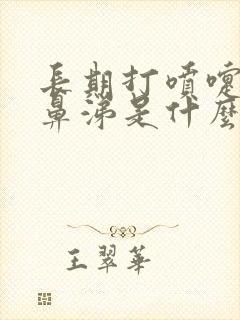 長期打噴嚏
鼻涕是什麼
王翠華